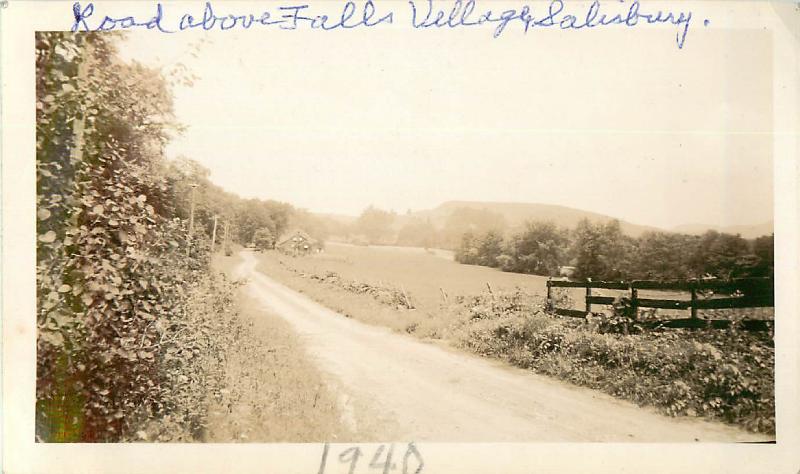 Road above Falls Village, Salisbury.
1940